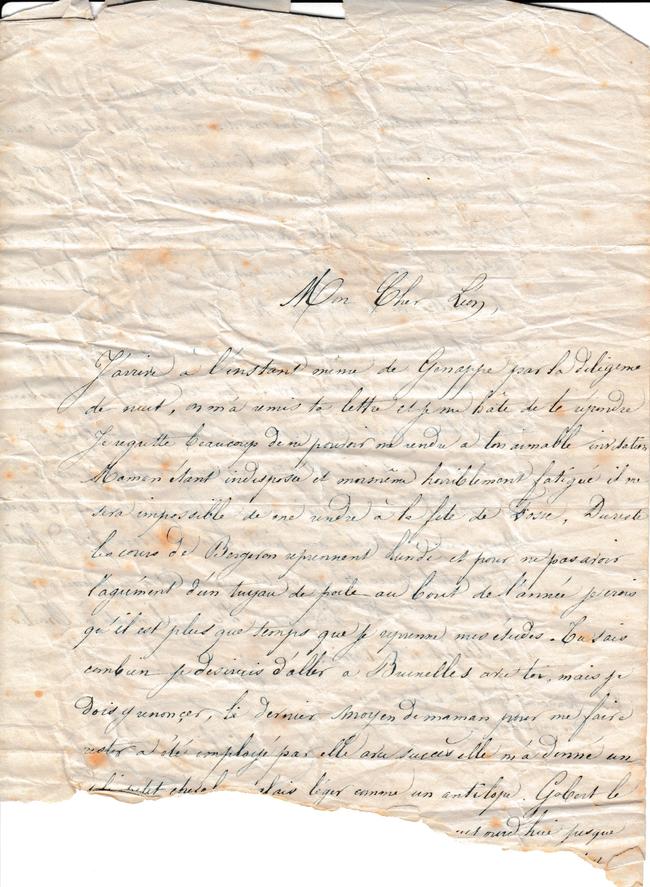 Mon Cher Léon,
J'arrive à l'instant même de Genappe par la diligence
de nuit, on m'a remis ta lettre et je me hâte de te repondre
Je regrette beaucoup de ne pouvoir me rendre a ton aimable invitation
Maman étant indisposée et moi même horriblement fatigué il me
sera impossible de me rendre à la fête de Du reste
les cours de Bergeron reprennent lundi et pour ne pas avoir
l'agrément d'un tuyau de poële au bout de l'année je crois
qu'il est plus que temps que je reprenne mes études. Tu sais
combien je désirais d'aller a Bruxelles avec toi, mais je
dois y renonçer, le dernier moyen de maman pour me faire
rester a été employé par elle avec succès elle m'a donné un
petit cheval léger comme un antilope. Gobert le
jusque